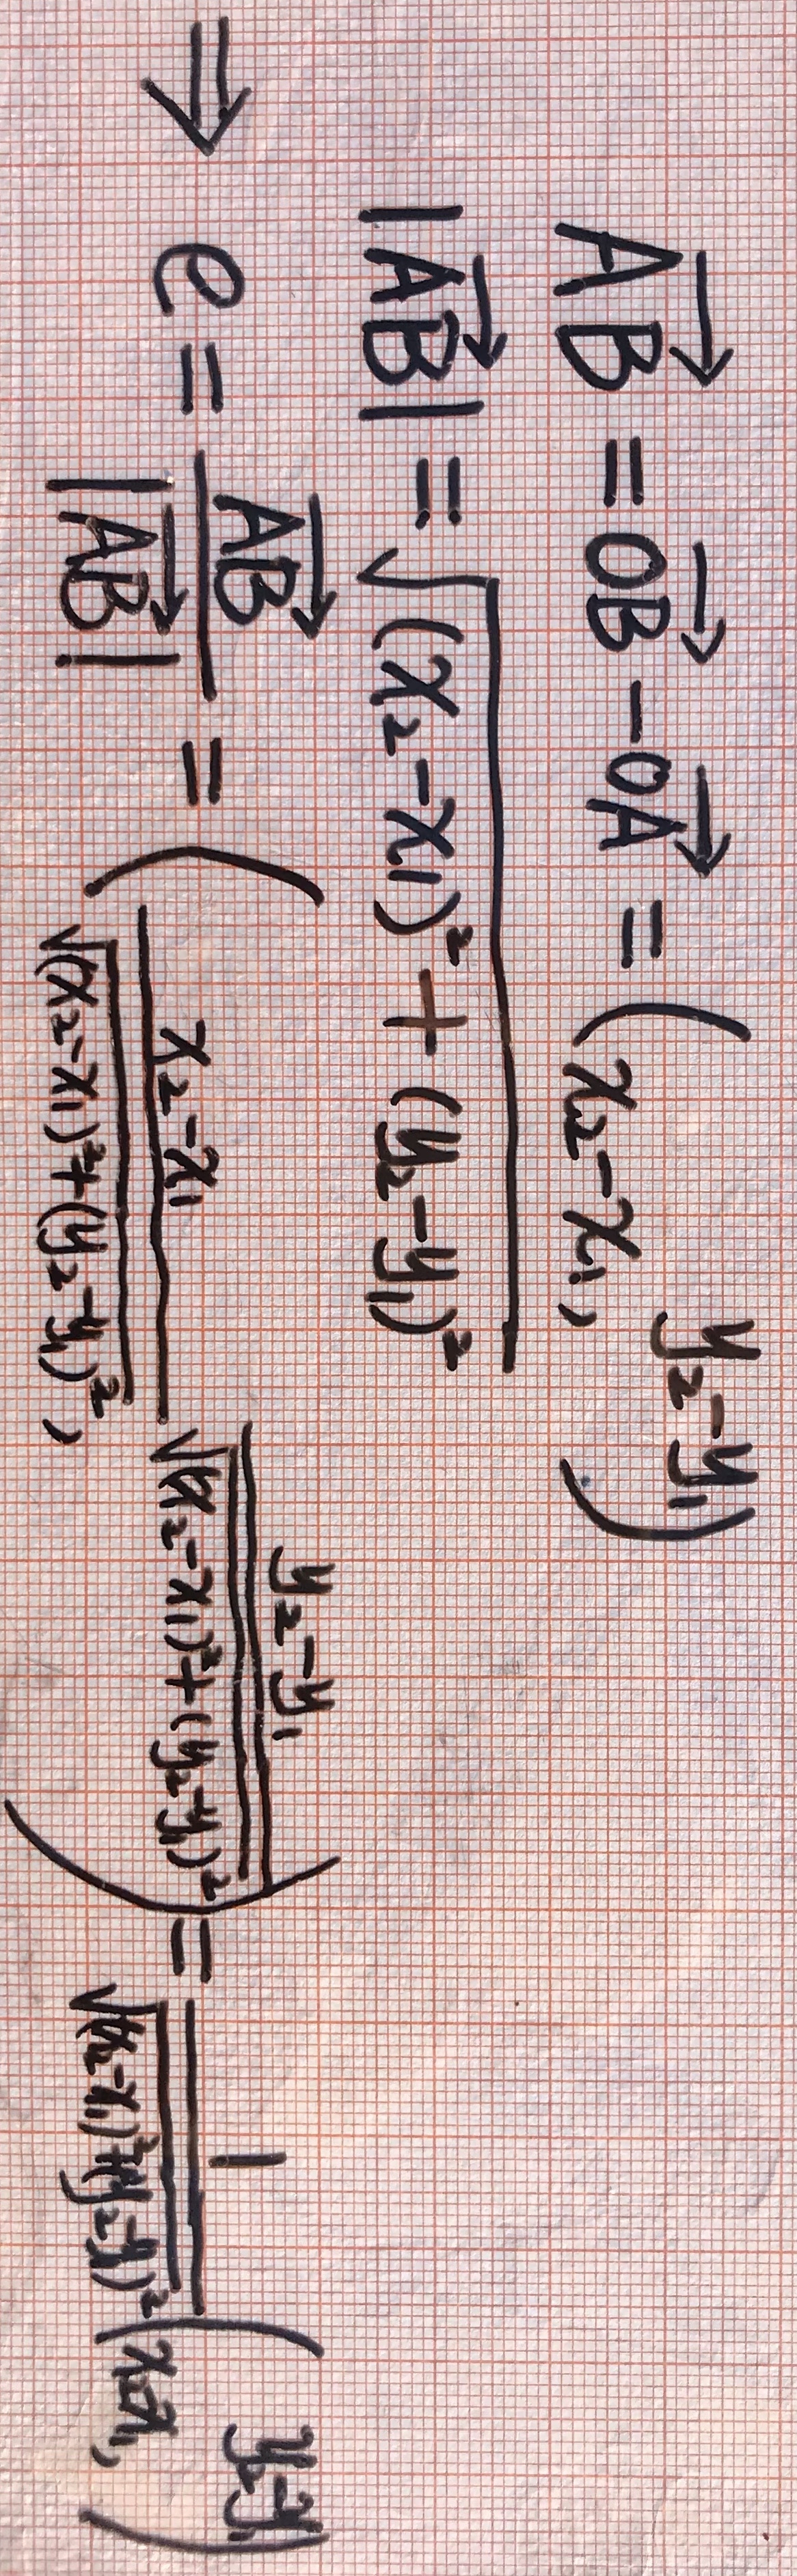 $\overrightarrow{AB} = \overrightarrow{OB} - \overrightarrow{OA} = (x_2 - x_1, y_2 - y_1)$
$|\overrightarrow{AB}| = \sqrt{(x_2 - x_1)^2 + (y_2 - y_1)^2}$
$\Rightarrow e = \frac{\overrightarrow{AB}}{|\overrightarrow{AB}|} = \left(\frac{x_2 - x_1}{\sqrt{(x_2 - x_1)^2 + (y_2 - y_1)^2}}, \frac{y_2 - y_1}{\sqrt{(x_2 - x_1)^2 + (y_2 - y_1)^2}}\right) = \frac{1}{\sqrt{(x_2 - x_1)^2 + (y_2 - y_1)^2}} (x_2 - x_1, y_2 - y_1)$